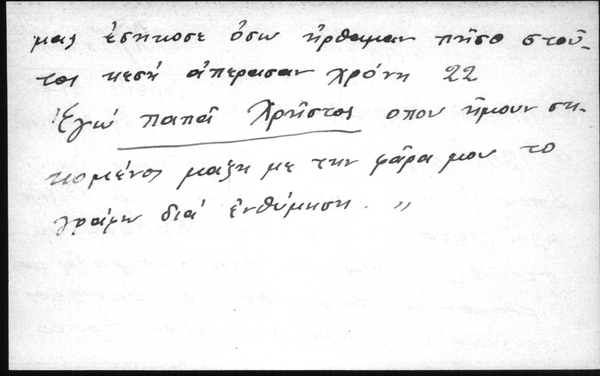 μας ἐσήκοσε ὅσω ἤρθαμαν πῆσο στοῦ-
τος κεσή ἀπερασαν χρόνη 22
Ἐγώ παπᾶ Χρῆστος οπου ἤμουν ση-
κομένος μαζη με την φάρα μου το
γράφω διά ἐνθύμηση. "